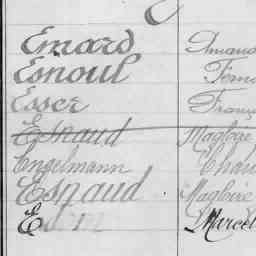 Emard Amand
Esnoul
Esser Franç
Esnaud Magloire
Engelmann Char
Esnaud Magloire
E Marcel